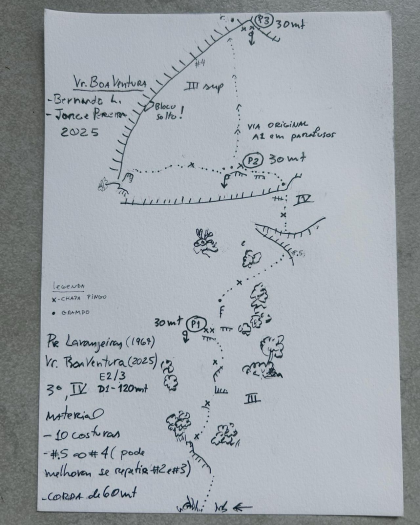 P3 30mt
#4
Vr. BoaVentura
III sup
- Bernardo L.
- Jorge Pereira
2025
Bloco solto!
VIA ORIGINAL
A1 em parafusos
P2 30mt
IV
#.5
LEGENDA
x-CHAPA PINGO
• GRAMPO
30mt P1
Pe Laranjeiras (1969)
Vr. BoaVentura (2025)
E2/3
3º, IV D1-120mt
III
MATERIAL
- 10 costuras
- #.5 ao #4 (pode
melhorar se repetir #2 e #3)
- CORDA de 60mt